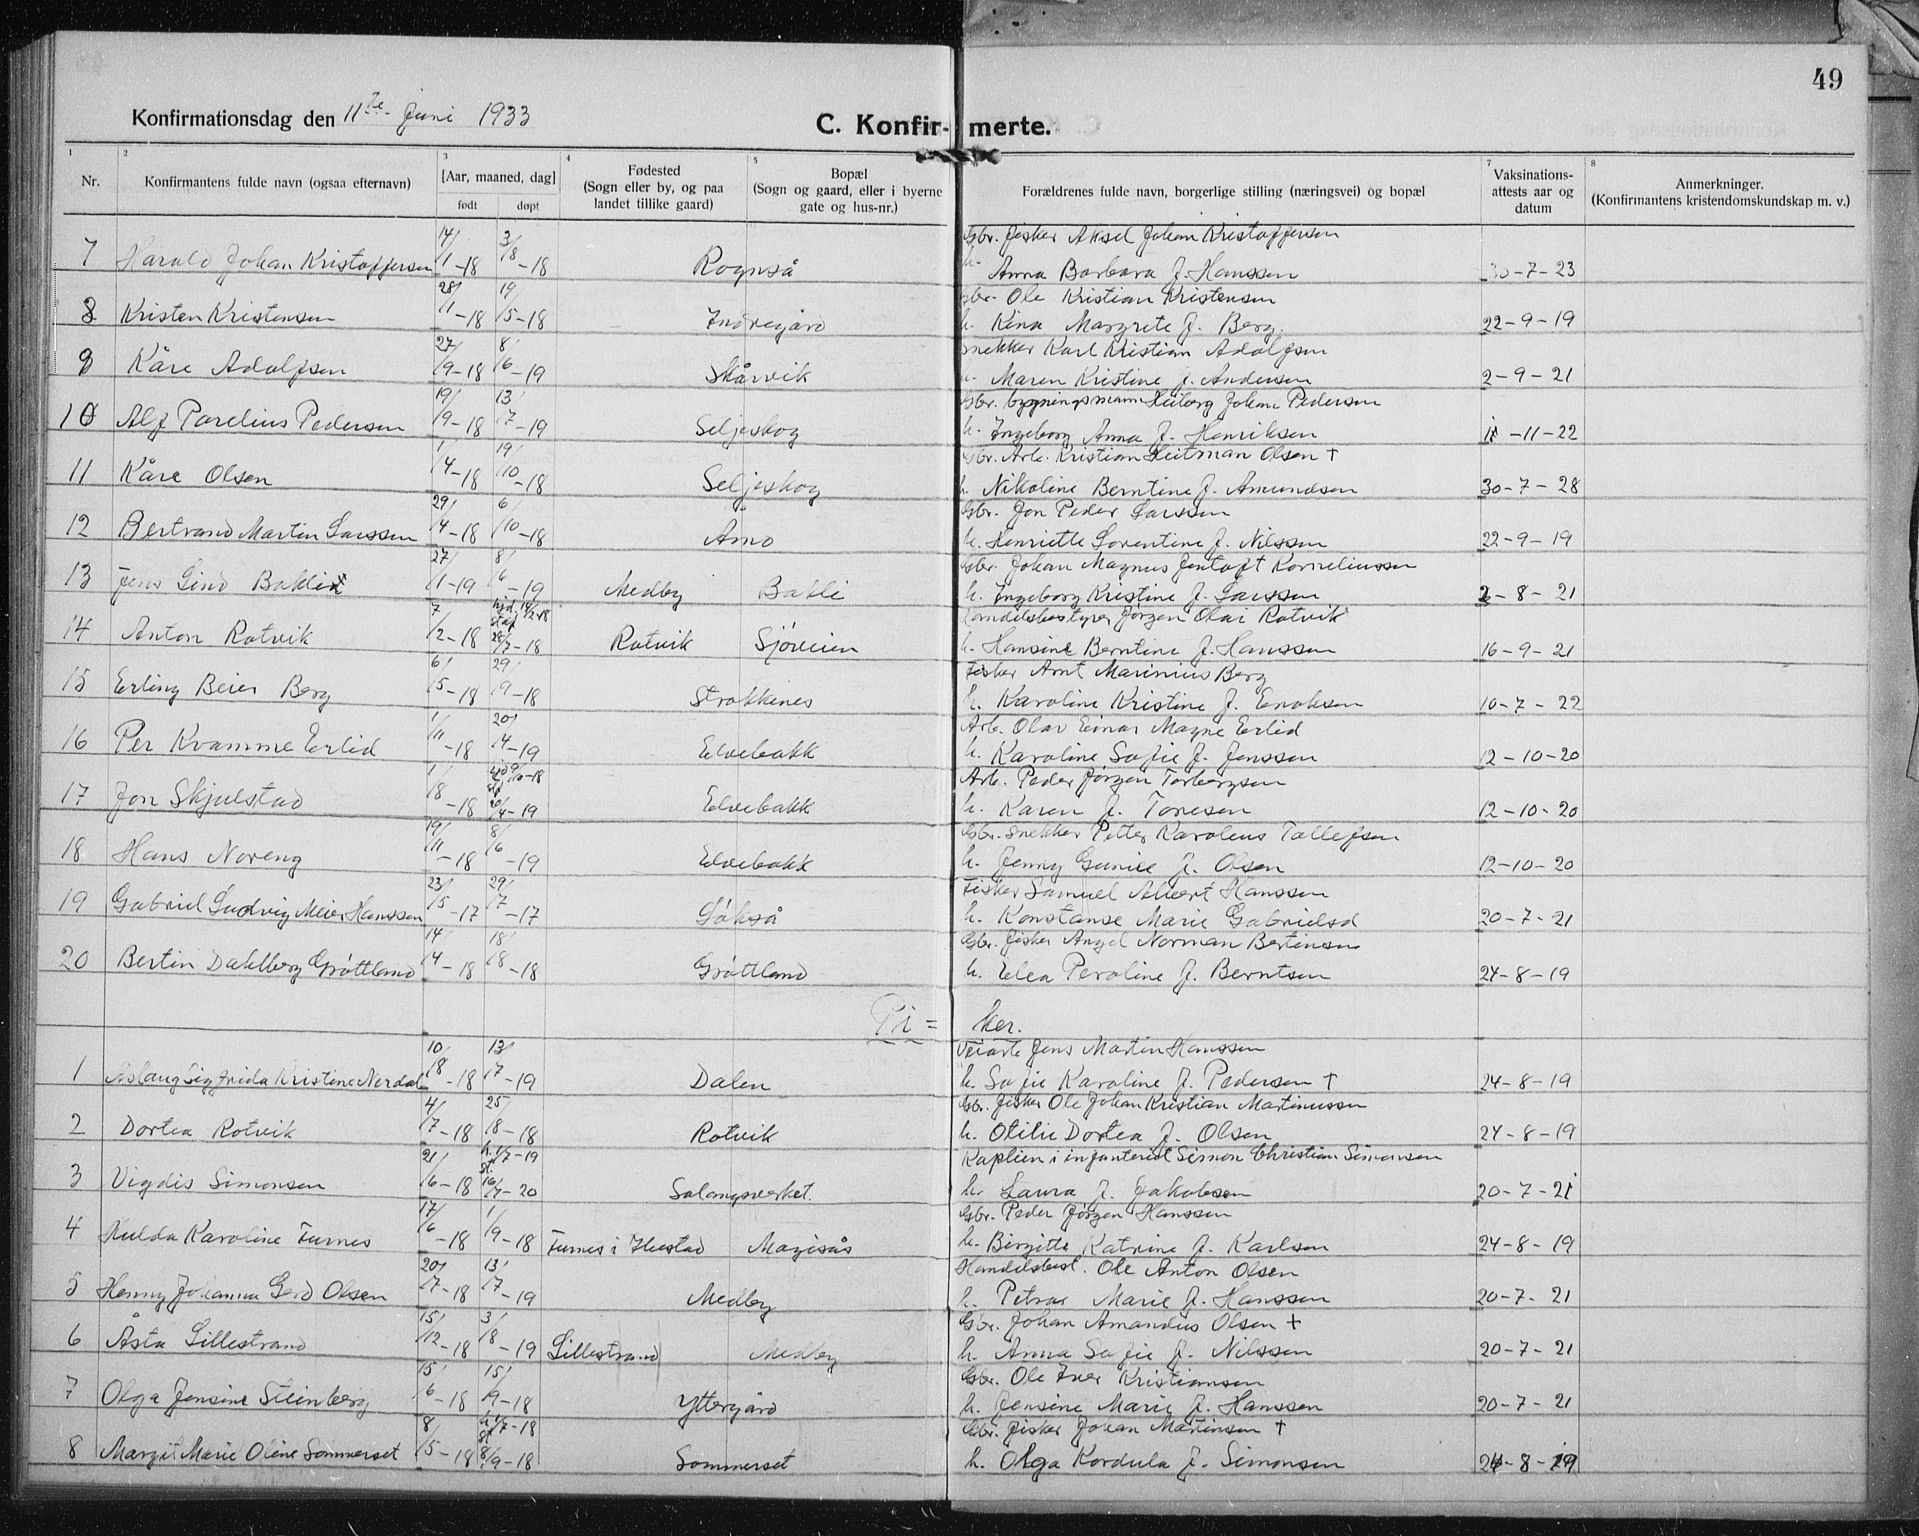 49
Konfirmationsdag den 11te Juni 1933
C. Konfir- merte.
1 2 3 4 5 7 8
Nr. Konfirmantens fulde navn (ogsaa efternavn) [Aar, maaned, dag] født døpt Fødested (Sogn eller by, og paa landet tillike gaard) Bopæl (Sogn og gaard, eller i byerne gate og hus-nr.) Forældrenes fulde navn, borgerlige stilling (næringsvei) og bopæl Vaksinations-attests aar og datum Anmerkninger. (Konfirmantens kristendomskundskap m. v.)
14/ 3/ Gbr. fisker Aksel Johan Kristoffersen
7 Harald Johan Kristoffersen /1-18 /8-18 Rognså h. Anna Barbara f. Hanssen 30-7-23
28/ 19/ Gbr. Ole Kristian Kristensen
8 Kristen Kristensen /1-18 /5-18 Indregård h. Kina Margrete f. Berg. 22-9-19
27/ 8/ Snekker Karl Kristian Adolfsen
9 Kåre Adolfsen /9-18 /6-19 Skårvik h. Maren Kristine f. Andersen 2-9-21
19/ 13/ Gbr. bygningsmann Johan Pedersen
10 Alf Parelius Pedersen /9-18 /7-19 Seljeskog h. Ingeborg Anna f. Henriksen -11-22
1/ 19/ Gbr. Arb. Kristian Heitman Olsen †
11 Kåre Olsen /4-18 /10-18 Seljeskog h. Nikoline Berntine f. Amundsen 30-7-28
29/ 6/ Gbr. Jon Peder Larssen
12 Bertrand Martin Larssen /4-18 /10-18 Arnö h. Henriette Lorentine f. Nilssen 22-9-19
27/ 8/ Gbr. Johan Magnus Jentoft Korneliussen
13 Jens Lind Bakli /1-19 /6-19 Medby Bakli h. Ingeborg Kristine f. Larssen 2-8-21
7/ hjd. 14/2-18 stdf. Handelsbestyrer Jørgen Olai Rotvik
14 Anton Rotvik /2-18 28/7-18 Rotvik Sjøveien h. Hansine Berntine f. Hanssen 16-9-21
6/ 29/ Fisker Arnt Marinius Berg
15 Erling Beier Berg /5-18 /9-18 Strokkenes h. Karoline Kristine f. Enoksen 10-7-22
1/ 20/ Arb. Olav Einar Magne Erlid
16 Per Kvamme Erlid /11-18 /4-19 Elvebakk h. Karoline Sofie f. Jenssen 12-10-20
1/ hjd 9/10-18 stf Arb. Peder Jørgen Torbergsen
17 Jon Skjulstad /8-18 20/4-19 Elvebakk h. Karen f. Tonesen 12-10-20
19/ 8/ Gbr. snekker Petter Karolius Tollefsen
18 Hans Noreng /11-18 /6-19 Elvebakk h. Jenny Gunile f. Olsen 12-10-20
23/ 29/ Fisker Samuel Albert Hanssen
19 Gabriel Ludvig Meier Hanssen /5-17 /7-17 Lökså h. Konstanse Marie Gabrielsd 20-7-21
14/ 18/ Gbr. fisker Angel Norman Bertinsen
20 Bertin Dahlberg Gröttland /4-18 /8-18 Gröttland h. Elea Peroline f. Berntsen 24-8-19
Pi = ker.
10/ 13/ Veiarb. Jens Martin Hanssen
1 Aslaug Sigfrida Kristine Nordal /8-18 /7-19 Dalen h. Sofie Karoline f. Pedersen † 24-8-19
4/ 25/ Gbr. fisker Ole Johan Kristian Martinussen
2 Dortea Rotvik /7-18 /8-18 Rotvik h. Otilie Dortea f. Olsen 24-8-19
21/ h. /7-19 st. Kaptein i infanteriet Simon Christian Simonsen
3 Vigdis Simonsen /6-18 16/7-20 Salangsverket. h. Laura f. Jakobsen 20-7-21
17/ 1/ Gbr. Peder Jørgen Hanssen
4 Hulda Karoline Furnes /6-18 /9-18 Furnes i Ibestad h. Birgitte Katrine f. Karlsen 24-8-19
20/ 13/ Handelsbest. Ole Anton Olsen
5 Henny Johanna Gerd Olsen /7-18 /7-19 Medby h. Petra Marie f. Hanssen 20-7-21
15/ 3/ Gbr. Johan Amandus Olsen †
6 Åsta Lillestrand /12-18 /8-19 Lillestrand Medby h. Anna Sofie f. Nilssen 20-7-21
15/ 15/ Gbr. Ole Iver Kristiansen
7 Olga Jensine Steinberg /6-18 /9-18 Yttergård h. Jensine Marie f. Hanssen 20-7-21
8/ h. /7-18 st Gbr. fisker Johan Martinsen †
8 Margit Marie Oline Sommerset /5-18 8/9-18 Sommerset h. Olga Kordula f. Simonsen 24-8-19